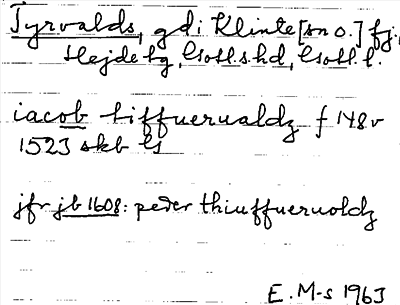 Tyrvalds, gd i Klinte [sn o.] fj.,
Hejde tg, Gotl. s. hd, Gotl. l.
iacob tiffuerualdz f 148v
1523 skb Gs
jfr jb 1608: peder thiuffueruoldz
E. M-s 1963